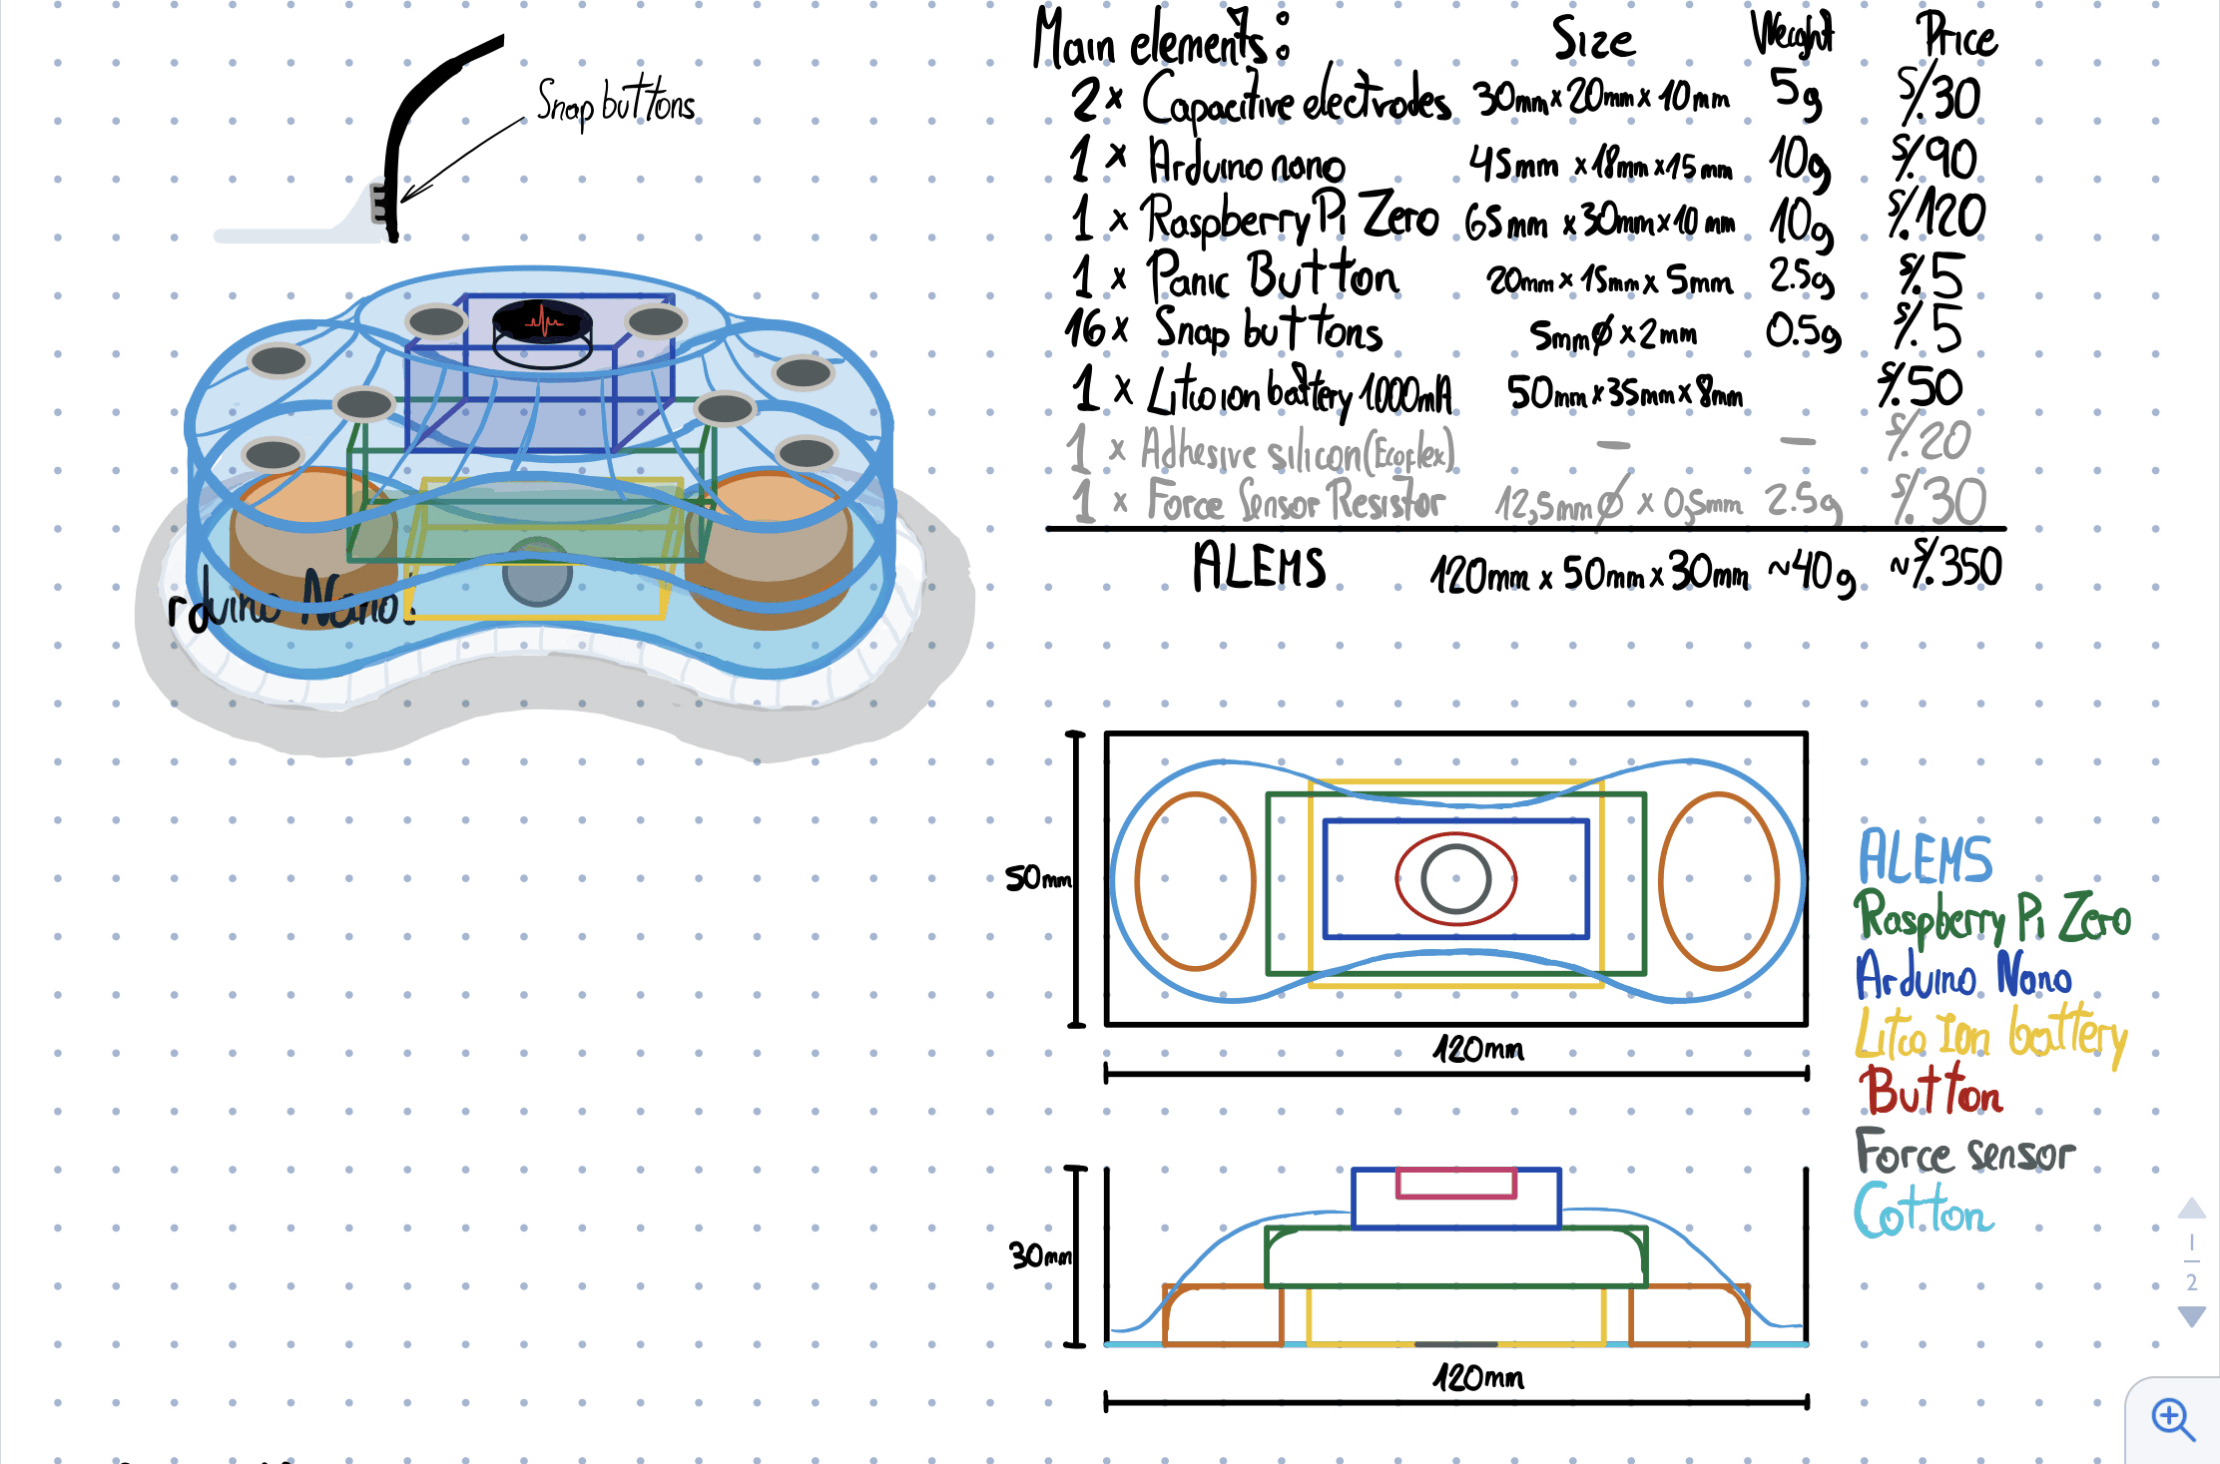 Snap buttons
Main elements: Size Weight Price
2 x Capacitive electrodes 30mm x 20mm x 10mm 5g S/.30
1 x Arduino nano 45mm x 18mm x 15mm 10g S/.90
1 x Raspberry Pi Zero 65mm x 30mm x 10mm 10g S/.120
1 x Panic Button 20mm x 15mm x 5mm 2.5g S/.5
16 x Snap buttons 5mmØ x 2mm 0.5g S/.5
1 x Litio ion battery 1000mA 50mm x 35mm x 8mm S/.50
1 x Adhesive silicon (Ecoflex) — — S/.20
1 x Force Sensor Resistor 12,5mmØ x 0,5mm 2.5g S/.30
ALEMS 120mm x 50mm x 30mm ~40g ~S/.350
rduino Nano:
50mm
120mm
ALEMS
Raspberry Pi Zero
Arduino Nano
Litio Ion battery
Button
Force sensor
Cotton
30mm
120mm
1
2